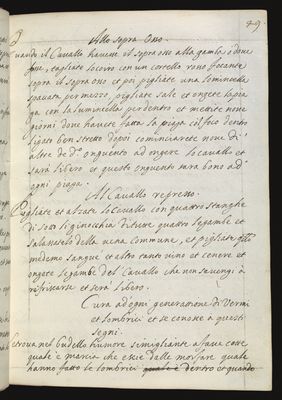 49
Allo sopra osso
Quando il Cavallo havesse il sopra osso alla gamba o dove
fosse, tagliate lo cuoro con un cortello rosso focante
sopra il sopra osso et poi pigliate una
per mezzo, pigliate sale et ongete la pia
ga con la per dentro et mettite nove
giorni dove havete fatto la piaga col foco dentro
ligato ben stretto dopoi cominciarete nove dì
altre de d.º onguento ad ongere lo cavallo et
sarà libero et questo onguento sarà bono ad
ogni piaga.
Al Cavallo represso.
Pigliate et alzate lo Cavallo con quattro stanghe
di sotto li ginocchia di tutte quattro le gambe et
salassatelo della vena commune, et pigliate
medemo sangue et altro tanto vino et cenere et
ongete le gambe del Cavallo che non si vengi à
rifriscarse et serà libero.
Cura ad ogni generatione di Vermi
et lombrici et se conosce a questi
segni.
Se trova nel budello humore simigliante a fave cotte
quale è marcia che esce dalle morsure quale
hanno fatto le lombrici quale è dentro et quando